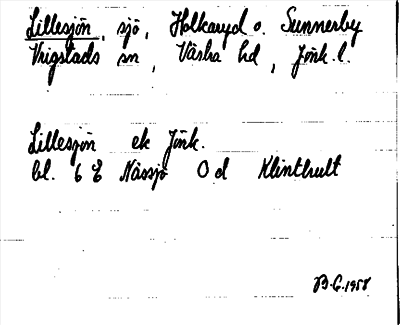 Lillesjön, sjö, Holkaryd o. Sunnerby
Vrigstads sn, Västra hd, Jönk. l.
Lillesjön ek Jönk.
bl. 6 E Nässjö 0 d Klinthult
B-G. 1958